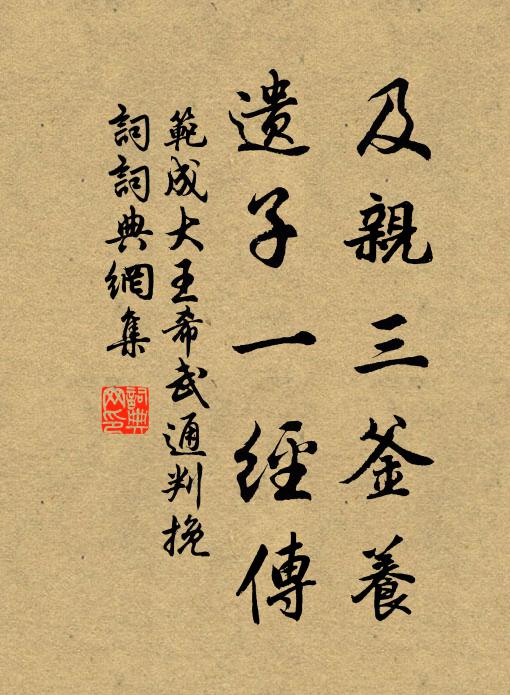 及親三釜養
遺子一經傳
範成大王希武通判挽
詞詞典網集
詞典網印